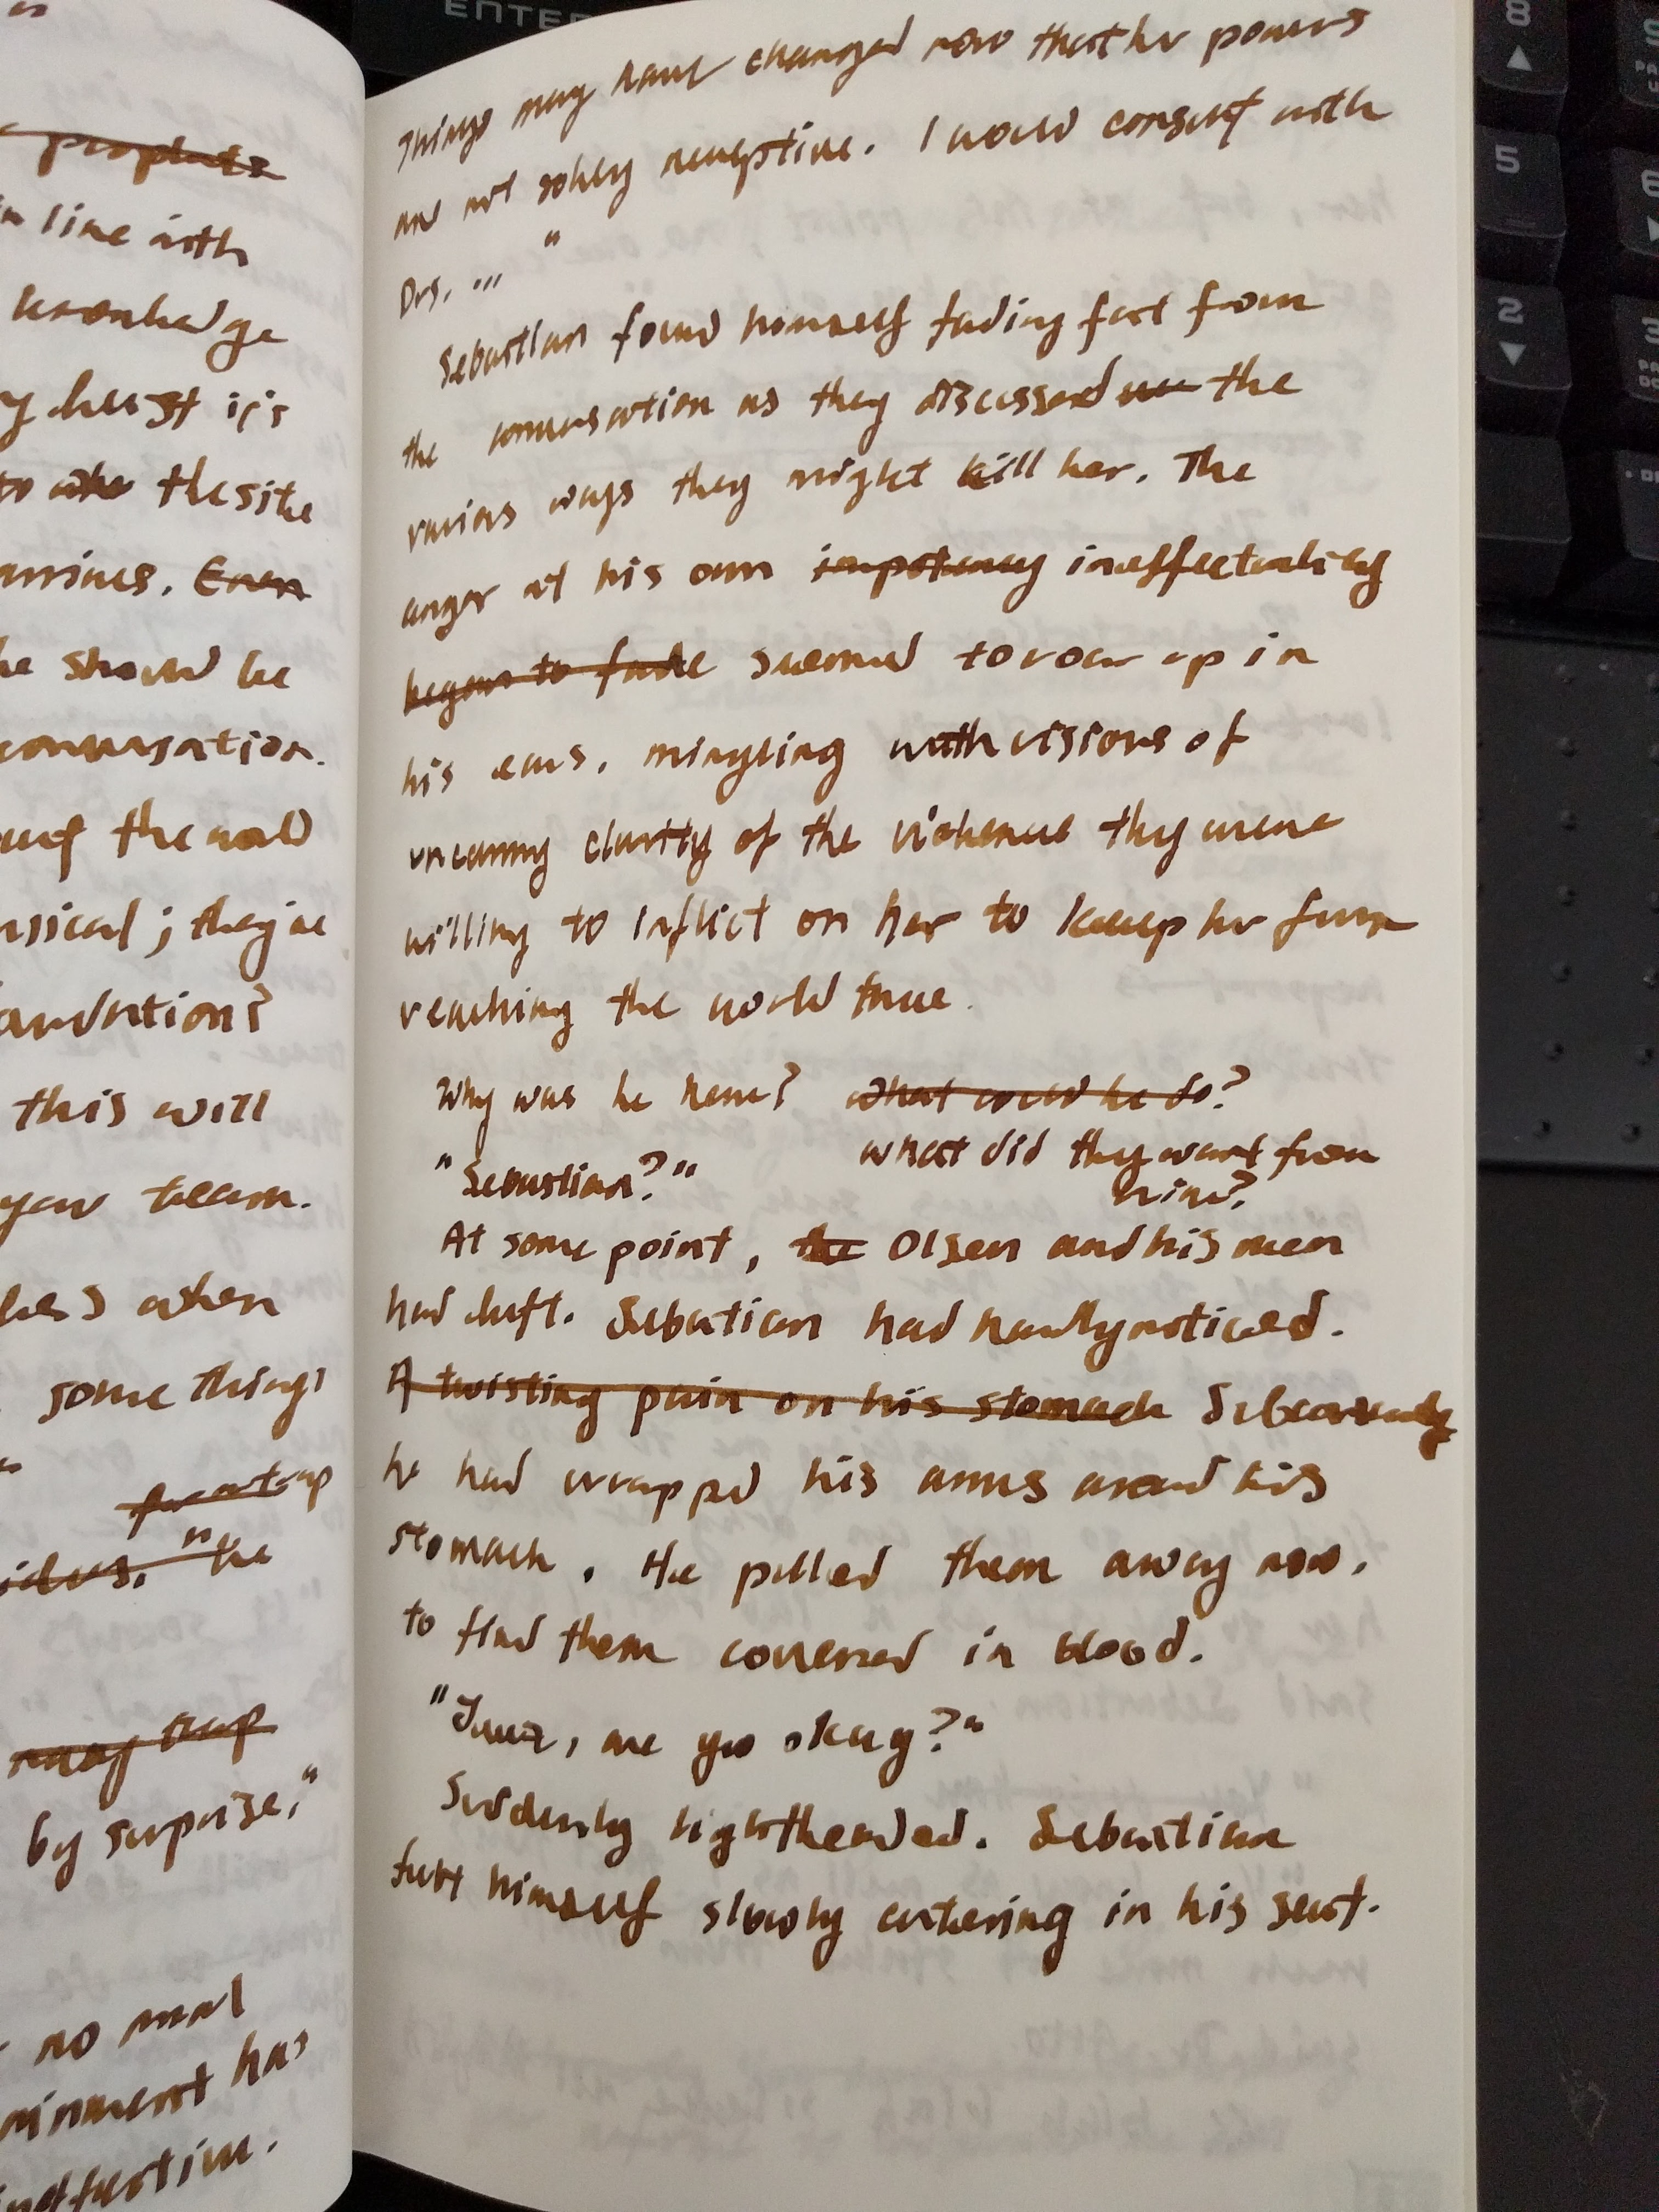 prophets
in line with
knowledge
y best it's
to the the site
arrives. Even
he should be
conversation.
the world
physical; they're
this will
your team.
when
some things
for a trap
he
may trap
by surprise."
no
has
ENTER
Things may have changed now that her powers
are not solely receptive. I would consult with
Drs. ... "
Sebastian found himself fading fast from
the conversation as they discussed the
various ways they might kill her. The
anger at his own impotency ineffectuality
began to fade seemed to roar up in
his ears, mingling with visions of
uncanny clarity of the violence they were
willing to inflict on her to keep her from
reaching the world tree.
Why was he here? What could he do?
what did they want from
him?
"Sebastian?"
At some point, the Olsen and his men
had left. Sebastian had hardly noticed.
A twisting pain on his stomach
he had wrapped his arms around his
stomach. He pulled them away now,
to find them covered in blood.
", are you okay?"
Suddenly lightheaded. Sebastian
felt himself slowly in his seat.
8
5
6
2
3